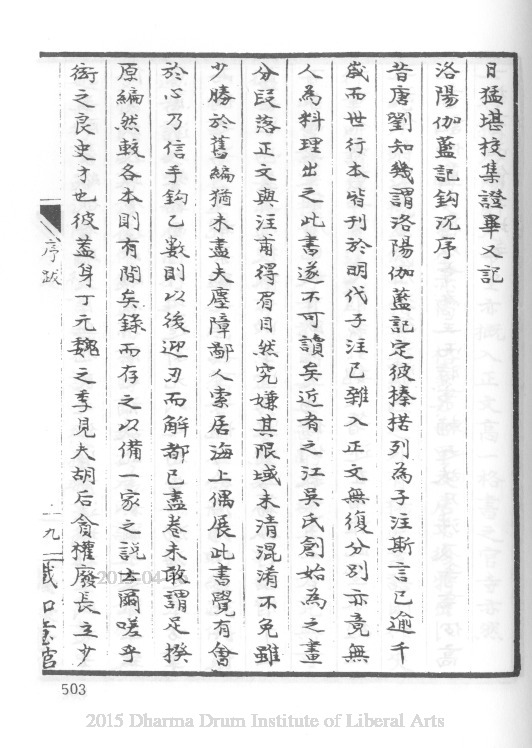 目猛堪校集證畢又記
洛陽伽藍記鈎沉序
昔唐劉知幾謂洛陽伽藍記定彼榛楛列為子注斯言已逾千
歲而世行本皆刊於明代子注已雜入正文無復分別亦竟無
人為料理出之此書遂不可讀矣近者之江吳氏創始為之畫
分段落正文與注甫得眉目然究嫌其限域未清混淆不免雖
少勝於舊編猶未盡夫塵障鄙人索居海上偶展此書覺有會
於心乃信手鈎乙數則以後迎刃而解都已盡卷未敢謂足揆
原編然較各本則有閒矣錄而存之以備一家之説云爾嗟乎
衒之良史才也彼蓋身丁元魏之季見夫胡后貪權廢長立少
序跋
一九一
503
2015 Dharma Drum Institute of Liberal Arts